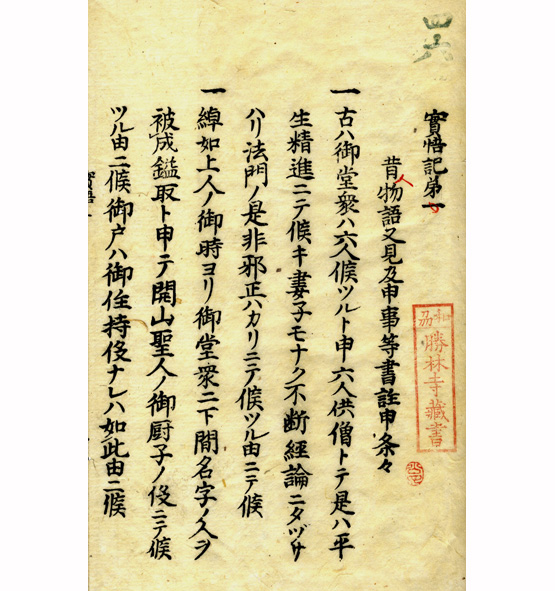 四六
實悟記第一
昔物語又見及申事等書註申条々
一古ハ御堂衆ハ六人候ツルト申六人供僧トテ是ハ平
生精進ニテ候キ妻子モナク不断經論ニタヅサ
ハリ法門ノ是非邪正ハカリニテ候ツル由ニテ候
一綽如上人ノ御時ヨリ御堂衆ニ下間名字ノ人ヲ
被成鎰取ト申テ開山聖人ノ御厨子ノ役ニテ候
ツル由ニ候御戸ハ御住持役ナレハ如此由ニ候
和
勝林寺藏書